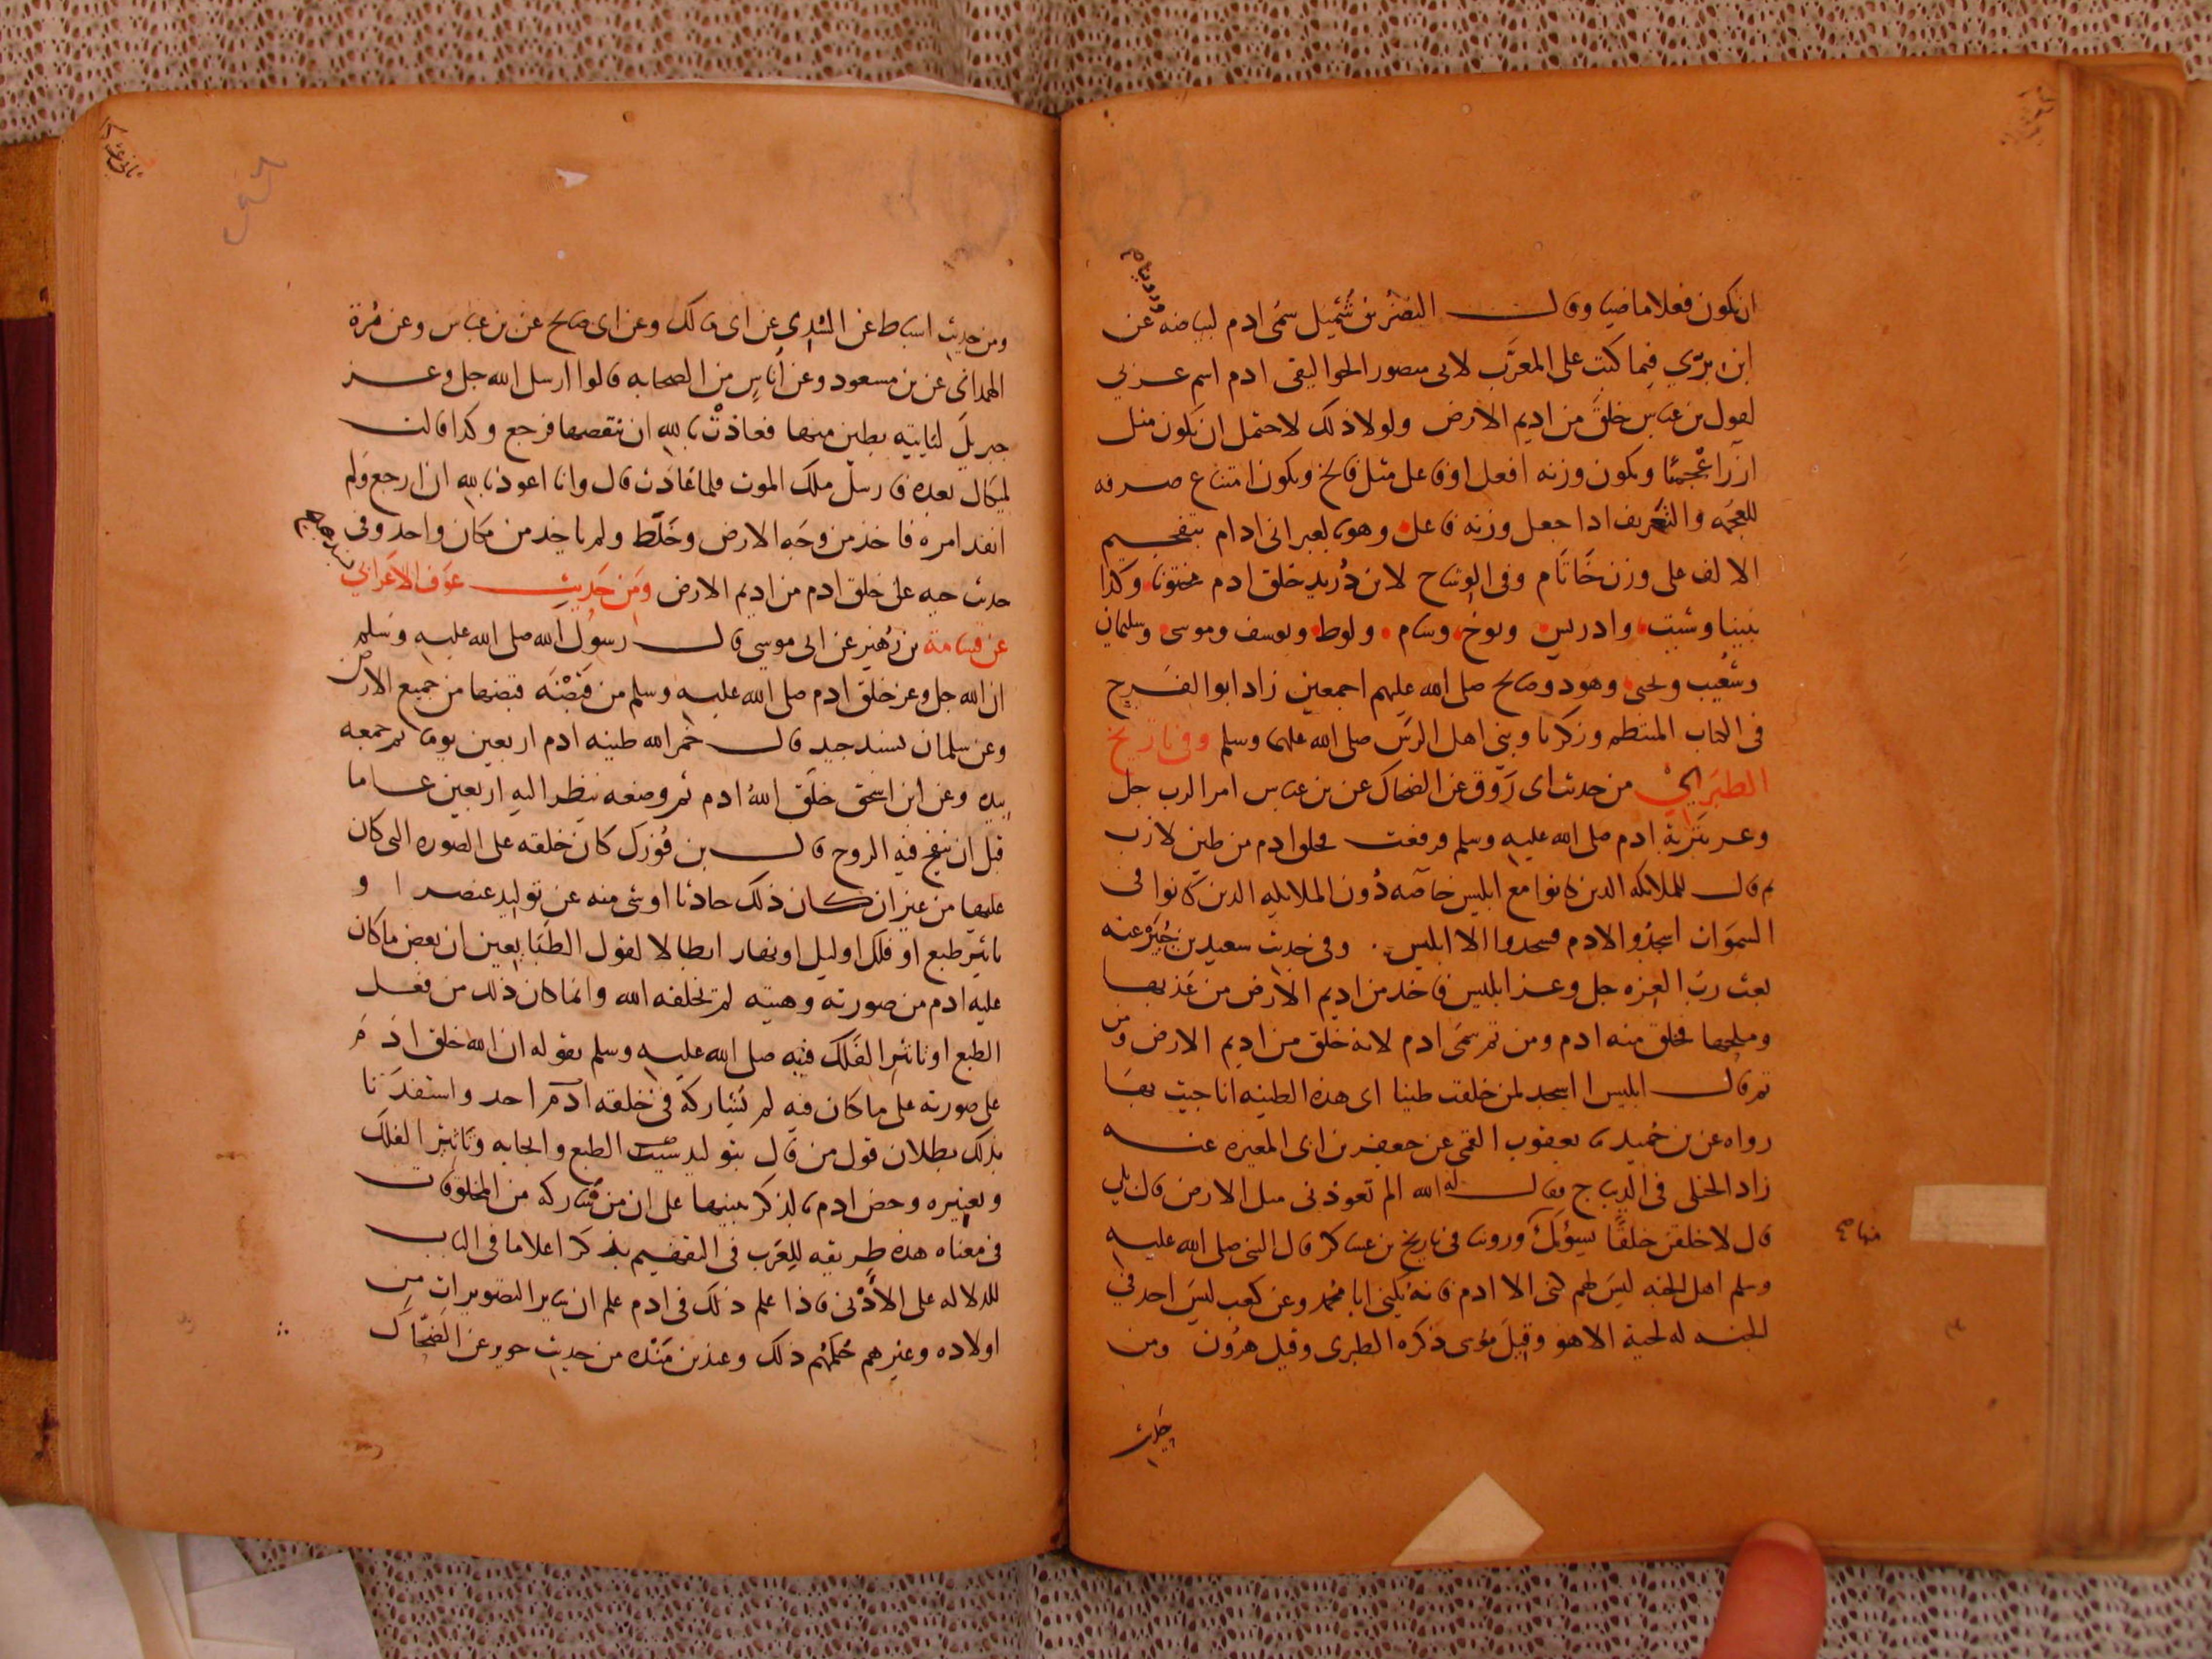 ان يكون فعلا ماضيا وقال النضر بن شُميل سمى ادم لبياضه وعن
ابن برّي فيما كتب على المعرَّب لابى منصور الجواليقى ادم اسم عربي
لقول بن عباس خلق من اديم الارض ولولا ذلك لاحتمل ان يكون مثل
ازر اعجميّا ويكون وزنه افعل او فاعل مثل فالخ ويكون امتناع صرفه
للعجمه والتعريف اذا جعل وزنه فاعل وهو بالعبرانى ادام بتفخيم
الالف على وزن خاتام وفى الوشاح لابن دُريد خلق ادم مختونا وكذا
نبينا وشيث وادريس ونوح وسام ولوط ويوسف وموسى وسليمان
وشعُيب ويحيى وهود وصالح صلى الله عليهم اجمعين زاد ابو الفرج
فى الكتاب المنتظم وزكريا ونبي اهل الرس صلى الله عليهما وسلم وفى تاريخ
الطبَري من حديث ابى رَوق عن الضحاك عن بن عباس امر الرب جل
وعز بتربة ادم صلى الله عليه وسلم فرفعت فخلق ادم من طين لازب
ثم قال للملائكه الذين كانوا مع ابليس خاصّه دُون الملائكه الذين كانوا فى
السموات اسجدوا لادم فسجدوا الا ابليس وفى حديث سعيد بن جُبَير عنه
بعث ربّ العزه جل وعز ابليس فاخذ من اديم الارض من عَذبها
وملحها فخلق منه ادم ومن ثم سمى ادم لانه خلق من اديم الارض ومن
ثم قال ابليس ااسجد لمن خلقت طينا اى هذه الطينه انا جيت بها
رواه عن بن حُميد ثنا يعقوب القمى عن جعفر بن ابى المغيره عنه
زاد الختلى فى الديباج فقال له الله الم تعوذ بى منك الارض قال بلي
قال لاخلقن خلقًا يسؤك وروينا فى تاريخ بن عساكر قال النبى صلى الله عليه
وسلم اهل الجنه ليسَ لهم كنى الا ادم فانه يُكنى ابا محُمد وعن كعب ليسَ احد في
الجنه له لحية الا هو وقيلَ موسى ذكره الطبرى وقيل هرُون ومن
حديث
ومن حديث اسباط عن السُّدي عن ابى مالك وعن ابى صالح عن بن عباس وعن مُرة
الهمدانى عن بن مسعود وعن أناسٍ من الصحابه قالوا ارسل الله جل وعز
جبريلَ لياتيه بطين منها فعاذتْ بالله ان ينقصها فرجع وكذا قالت
لميكال بعده فارسل ملك الموت فلما عَاذت قال وانا اعوذ بالله ان ارجع ولم
انفد امره فاخذ من وجَه الارض وخلَّط ولم ياخد من مكان واحد وفى
حديث حبه على خلق ادم من اديم الارض ومن حَديثِ عَوف الاعَرابي
عن قسامة بن زُهَير عن ابى موسى قال رسوُل الله صلى الله عليه وسَلم
ان الله جل وعز خلق ادم صلى الله عليه وسلم من قبضَه قبضها من جميع الارض
وعن سلمان بسند جيد قال خمر الله طينه ادم اربعين يوما ثم جمعه
بيده وعن ابن اسحق خلَق اللهُ ادم ثم وضعه ينظر اليه اربعين عاما
قبل ان ينفخ فيه الروح قال بن فُورَك كان خلقه على الصوره التى كان
عليها من غير ان كان ذلك حادثا او شى منه عن توليد عنصر او
تاثير طبع او فلك او ليل او نهار ابطالا لقول الطبَايعيين ان بعض ما كان
عليه ادم من صورته وهيئته لم يخلقه الله وانما كان ذلك من فعل
الطبع او تاثير الفَلك فنبه صلى الله عليه وسلم بقوله ان الله خلق ادَم
على صورته على ما كان فيه لم يُشاركه في خلقه ادم احد واستفدنا
بذلك بطلان قول من قال بتوليد الطبع وايجابه وتاثير الفلك
وتغييره وخص ادم بالذكر تنبيها على ان من شاركه من المخلوقات
في معناه هذه طريقه للعَرَب فى التفهيم بذكر اعلاما فى الباب
للدلاله على الأدْنى فاذا علم ذلك فى ادم علم ان ساير التصويرات من
اولاده وغيرهم حُكمهُم ذلك وعند بن مَنْده من حديث جويبر عن الضحّاك